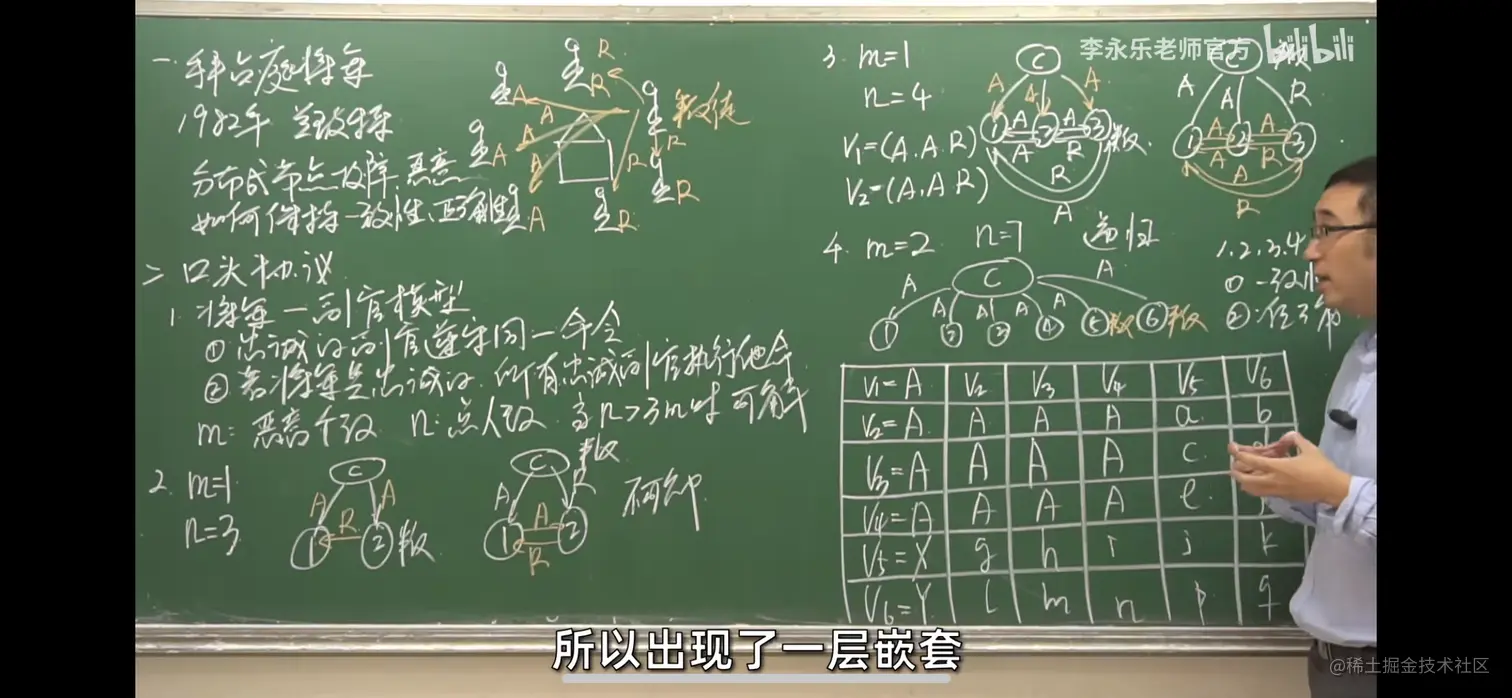 一. 拜占庭将军
1982年 兰波特
分布式节点故障 恶意
如何保持一致性、正确性
A
R
R
A
A
R
A
A
A
R
R
R
A
R
叛徒
二 口头协议
1. 将军—副官模型
① 忠诚的副官遵守同一命令
② 若将军是忠诚的, 所有忠诚副官执行他命
m: 恶意个数 n: 总人数 当n>3m时 可解
2. m=1
n=3
C
A A
R
1 2 叛
C 叛
A R
A
1 2
R
不可解
3. m=1
n=4
V1=(A.A.R)
V2=(A.A R)
C
A A A
1 A 2 A 3 叛
A R
R
A
C 叛
A A R
1 A 2 A 3
A R
A
R
4. m=2 n=7 递归
C
A A A A A A
① ② ③ ④ ⑤叛 ⑥叛
1.2.3.4
① 一致
②
V1=A V2 V3 V4 V5 V6
V2=A A A A a b
V3=A A A A c d
V4=A A A A e
V5=X g h i j k
V6=Y l m n p q
李永乐老师官方 bilibili
所以出现了一层嵌套
@稀土掘金技术社区